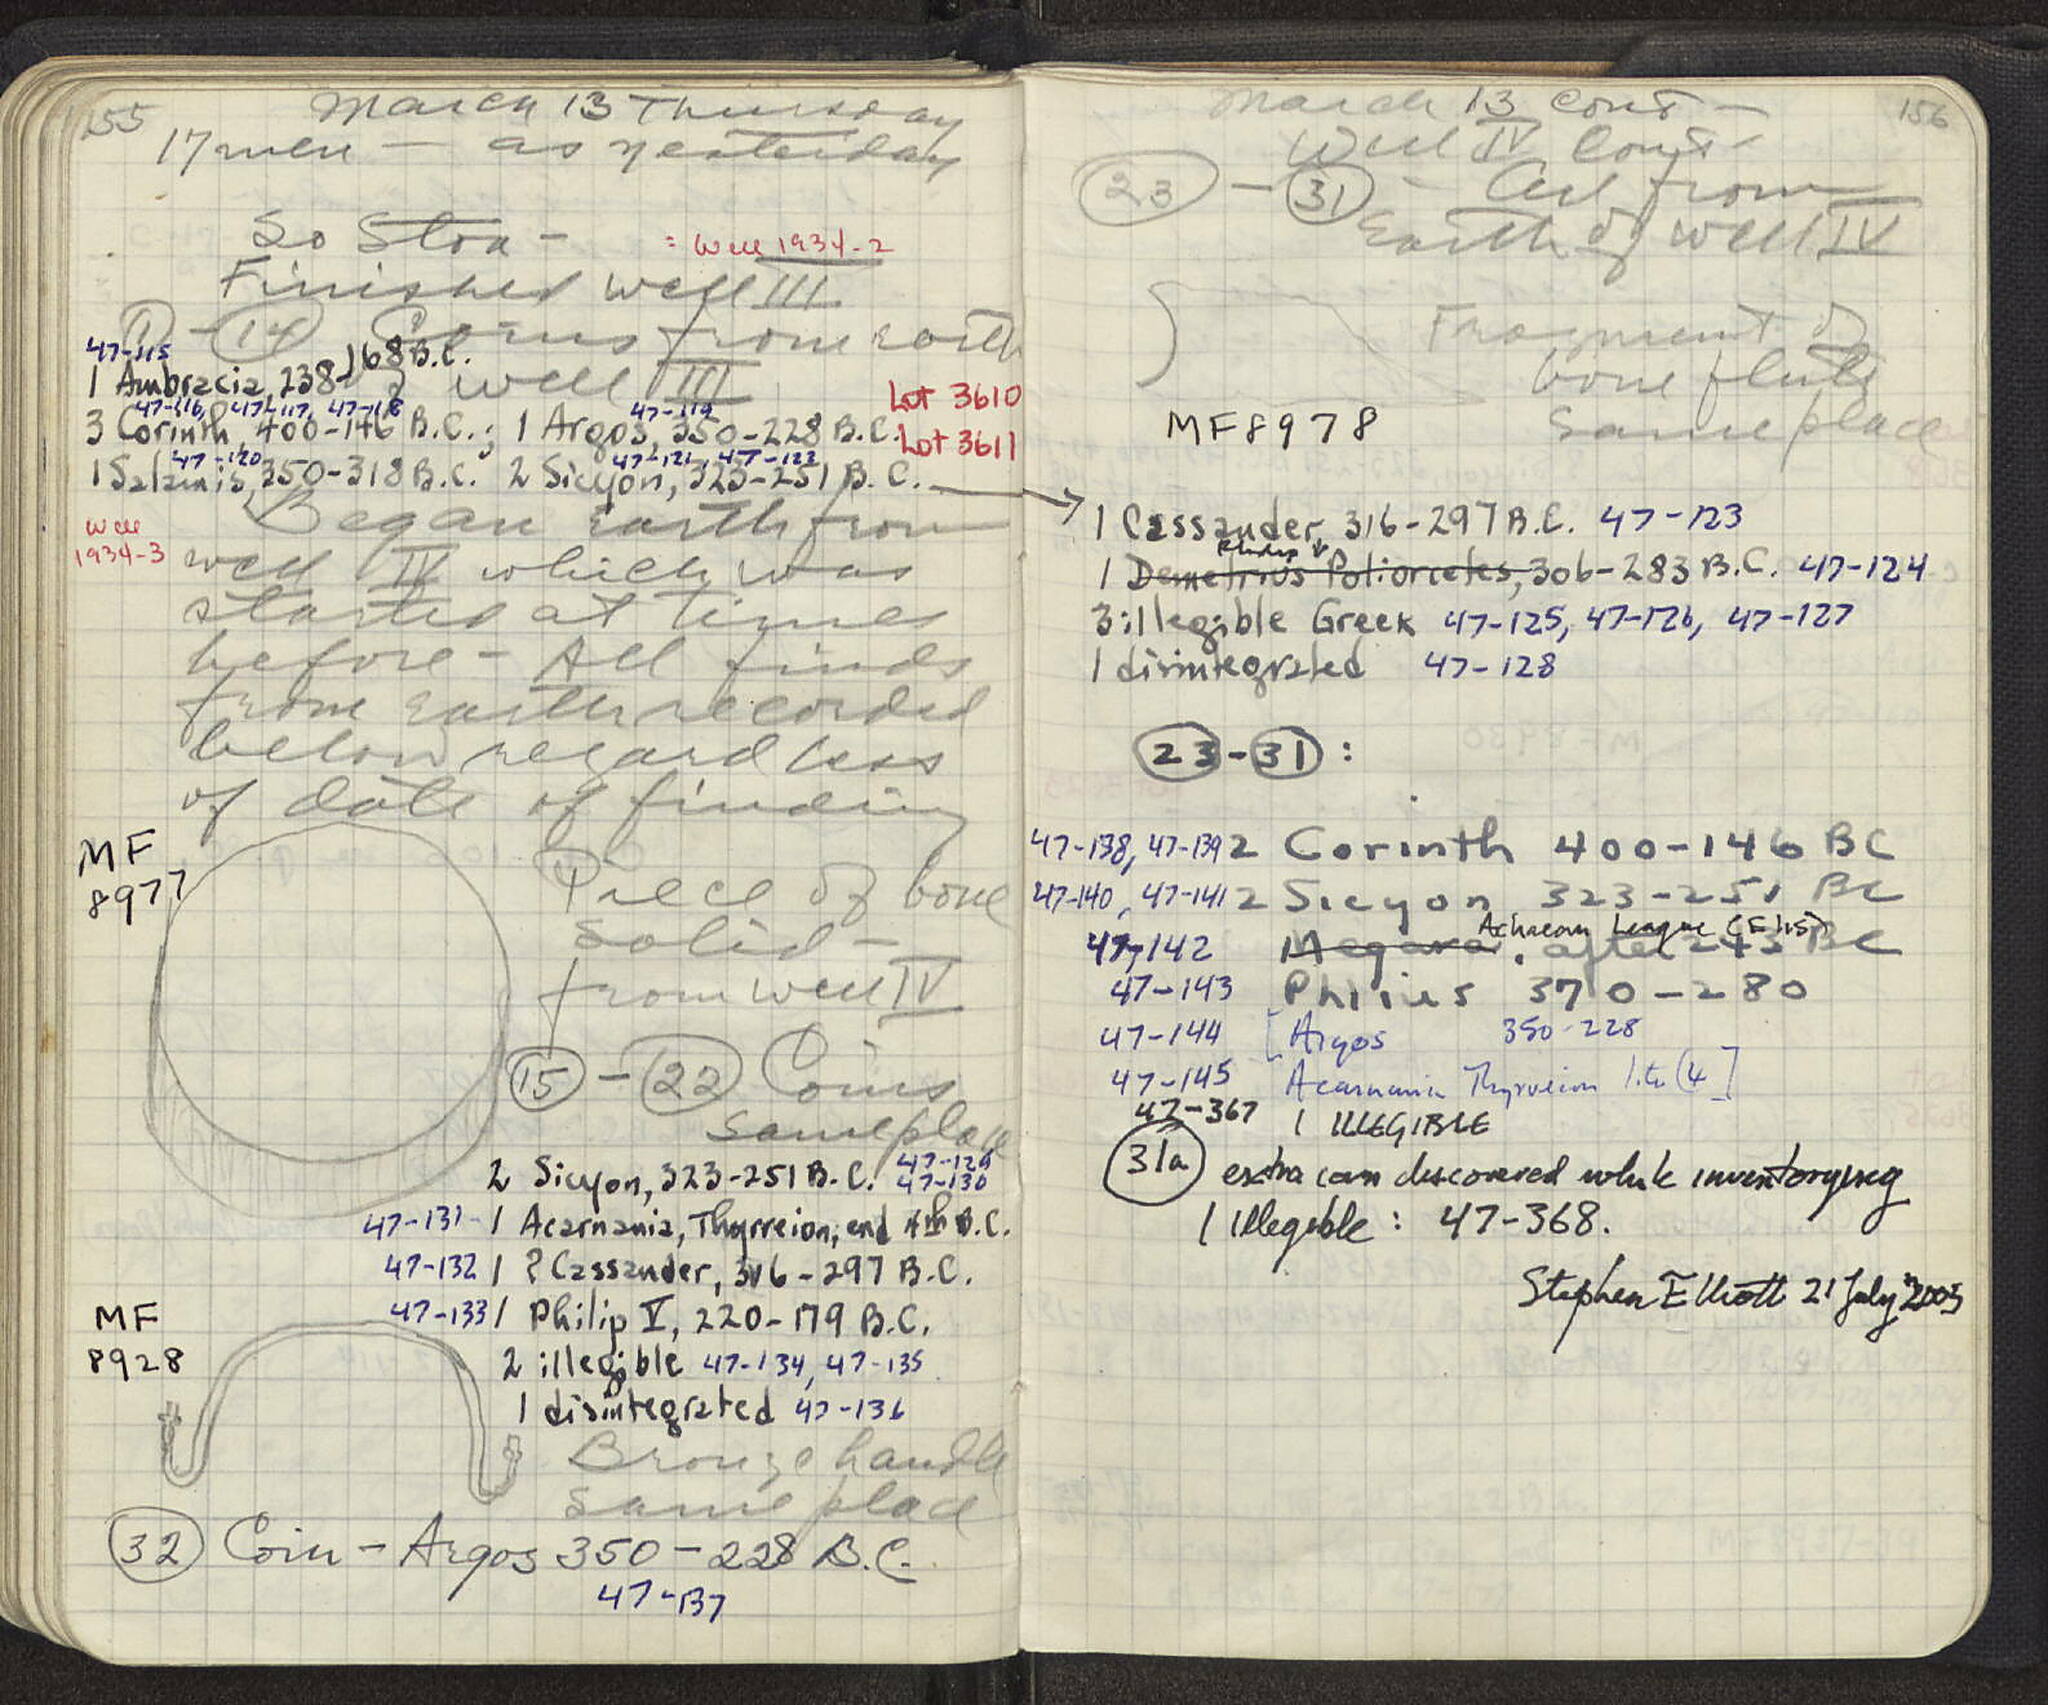 155
March 13 Thursday
17 men — as yesterday
So Stoa -
= Well 1934-2
Finished well III
1 - 14 Coins from earth
47-115
1 Ambracia, 238-168 B.C.
well III
Lot 3610
47-116, 47-117, 47-118 47-119
3 Corinth, 400-146 B.C.; 1 Argos, 350-228 B.C.
Lot 3611
47-120 47-121, 47-122
1 Salamis, 350-318 B.C. 2 Sicyon, 323-251 B.C.
Began earth from
Well
1934-3
well IV which was
started at times
before - All finds
from earth recorded
below regardless
of date of finding
MF
8977
Piece of bone
solid -
from well IV
15 - 22 Coins
same place
2 Sicyon, 323-251 B.C. 47-129
47-130
47-131 - 1 Acarnania, Thyrreion, end 4th B.C.
47-132 1 ? Cassander, 316-297 B.C.
47-133 1 Philip V, 220-179 B.C.
MF
8928
2 illegible 47-134, 47-135
1 disintegrated 47-136
Bronze handle
same place
32 Coin - Argos 350-228 B.C.
47-137
156
March 13 Cont -
Well IV Cont -
23 - 31 - All from
Earth of well IV
Fragment of
bone flute
same place
MF8978
1 Cassander, 316-297 B.C. 47-123
1 Demetrius Poliorcetes, 306-283 B.C. 47-124
3 illegible Greek 47-125, 47-126, 47-127
1 disintegrated 47-128
23-31:
47-138, 47-139 2 Corinth 400-146 BC
47-140, 47-141 2 Sicyon 323-251 BC
Achaean League
47-142 Megara. after 243 BC
47-143 Phlius 370-280
47-144 [Argos 350-228
47-145 Acarnania Thyrreion
47-367 1 ILLEGIBLE
31a extra coin discovered while inventorying
1 illegible: 47-368.
Stephen Elliott 21 July 2003